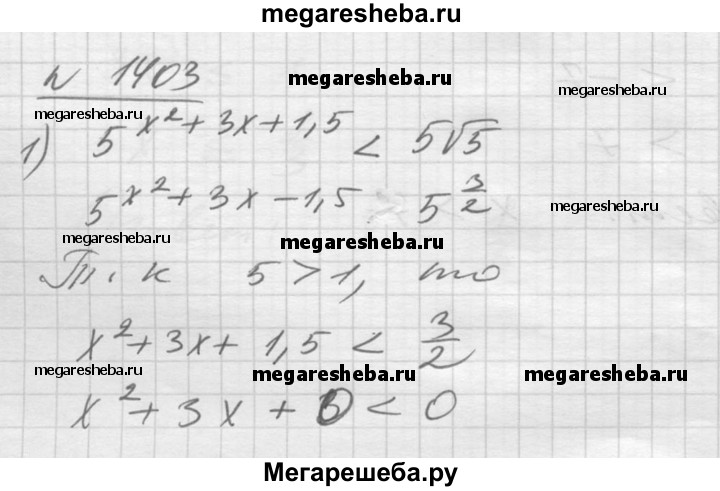 megaresheba.ru
N 1403
megaresheba.ru
megaresheba.ru
1) 5^{x²+3x+1,5} < 5√5
5^{x²+3x-1,5} 5^{3/2}
megaresheba.ru
megaresheba.ru
megaresheba.ru
Т. к 5 > 1, то
x² + 3x + 1,5 < 3/2
megaresheba.ru
megaresheba.ru
megaresheba.ru
x² + 3x + 0 < 0
Мегарешеба.ру